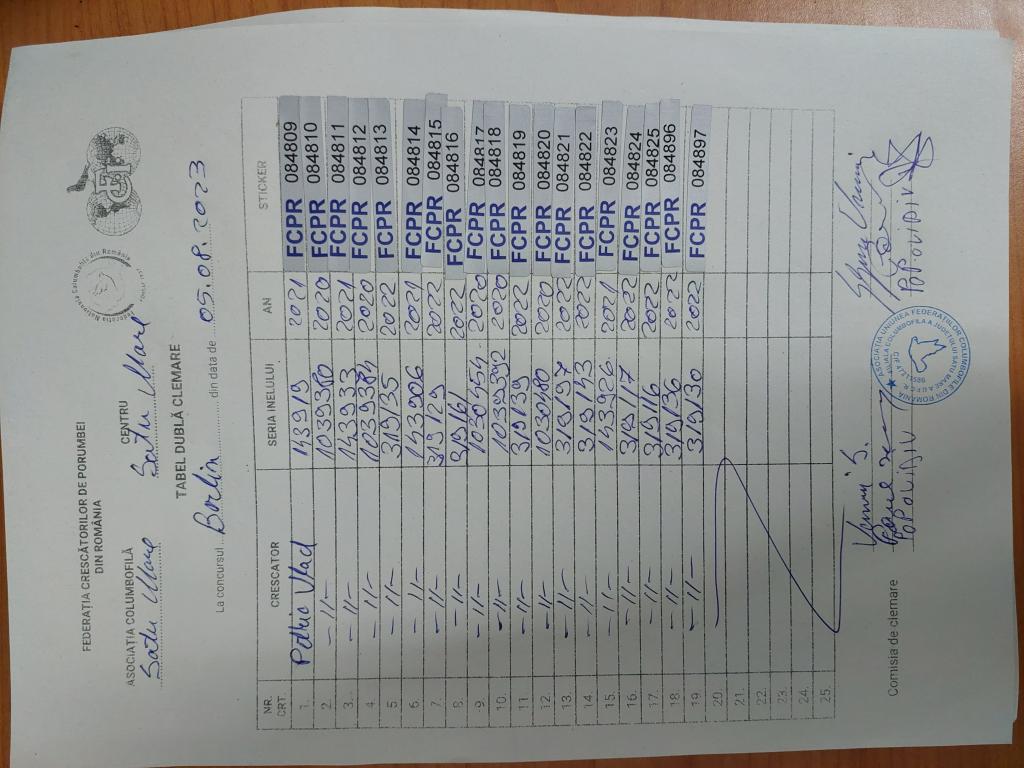 FEDERAȚIA CRESCĂTORILOR DE PORUMBEI
DIN ROMÂNIA
ASOCIAȚIA COLUMBOFILĂ CENTRU
Satu Mare Satu Mare
TABEL DUBLĂ CLEMARE
La concursul Berlin din data de 05.08.2023
NR. CRT. CRESCATOR SERIA INELULUI AN STICKER
1. Vlad 143919 2021 FCPR 084809
2. -11- 1039380 2020 FCPR 084810
3. -11- 143933 2021 FCPR 084811
4. -11- 1039384 2020 FCPR 084812
5. -11- 319135 2022 FCPR 084813
6. -11- 143906 2021 FCPR 084814
7. -11- 319129 2022 FCPR 084815
8. -11- 319161 2022 FCPR 084816
9. -11- 1030454 2020 FCPR 084817
10. -11- 1039392 2020 FCPR 084818
11. -11- 319139 2022 FCPR 084819
12. -11- 1030480 2020 FCPR 084820
13. -11- 319197 2022 FCPR 084821
14. -11- 319143 2022 FCPR 084822
15. -11- 143926 2021 FCPR 084823
16. -11- 319117 2022 FCPR 084824
17. -11- 319116 2022 FCPR 084825
18. -11- 319136 2022 FCPR 084896
19. -11- 319130 2022 FCPR 084897
20.
21.
22.
23.
24.
25.
Comisia de clemare
POPOVIDIV POPOVIDIV